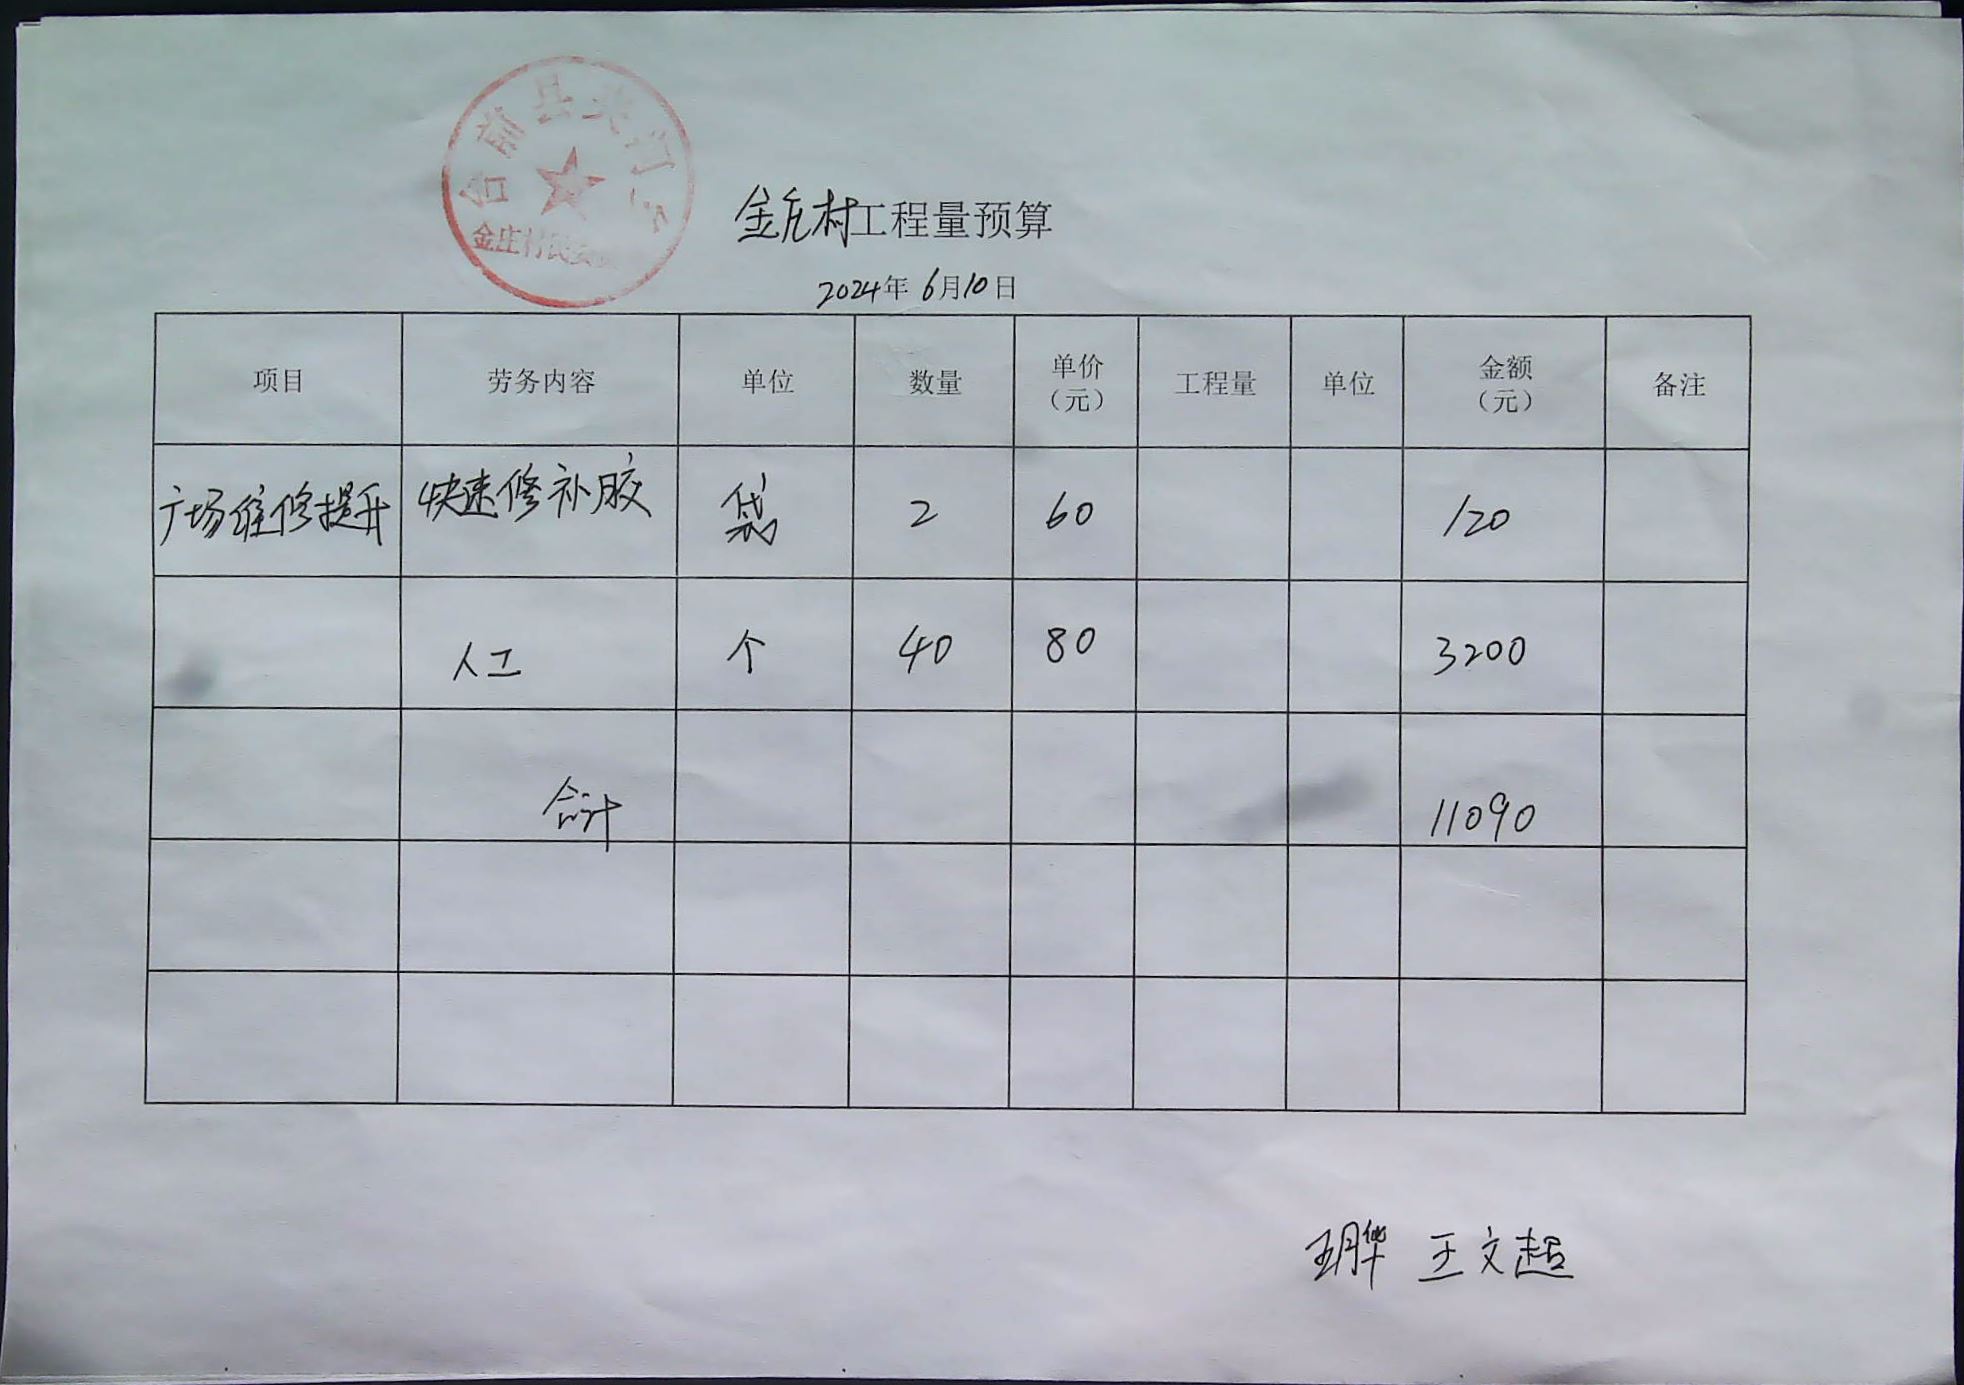 台前县夹河乡
金庄村民委员
金庄村工程量预算
2024年6月10日
项目 劳务内容 单位 数量 单价（元） 工程量 单位 金额（元） 备注
广场维修提升 快速修补胶 袋 2 60 120
人工 个 40 80 3200
合计 11090
王文超